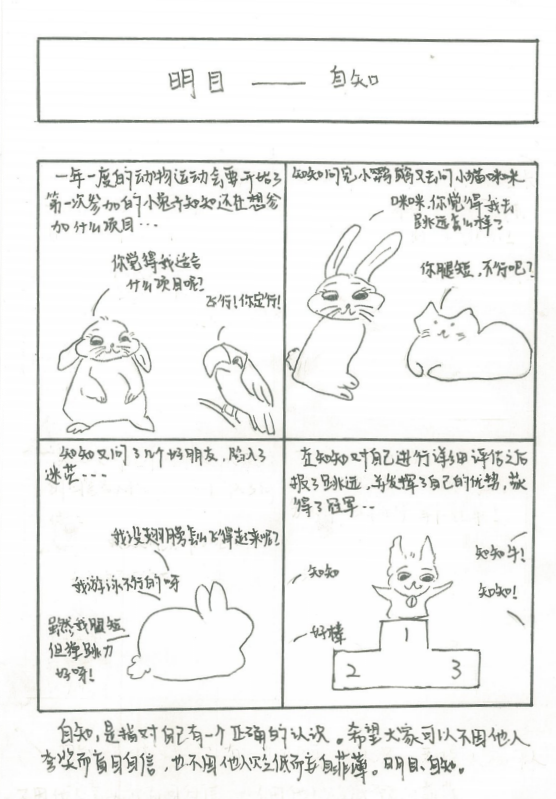 明目 —— 自知
一年一度的动物运动会要开始了
第一次参加的小兔子知知还在想参
加什么项目···
你觉得我适合
什么项目呢?
飞行!你定行!
知知问完小鹦鹉又去问小猫咪咪
咪咪,你觉得我去
跳远怎么样?
你腿短,不行吧?
知知又问了几个好朋友,陷入了
迷茫···
我没翅膀怎么飞得起来呢?
我游泳不行的呀
虽然我腿短
但弹跳力
好呀!
在知知对自己进行详细评估之后
报了跳远,并发挥了自己的优势,获
得了冠军··
知知
好棒
知知牛!
知知!
1
2
3
自知,是指对自己有一个正确的认识。希望大家可以不因他人
夸奖而盲目自信,也不因他人贬低而妄自菲薄。明目,自知。